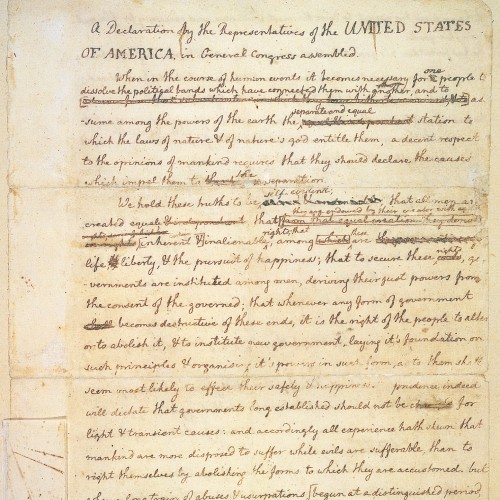 A Declaration by the Representatives of the UNITED STATES
OF AMERICA, in General Congress assembled.
When in the course of human events it becomes necessary for one people to
dissolve the political bands which have connected them with another, and to
as
separate and equal
-sume among the powers of the earth the station to
which the laws of nature & of nature's god entitle them, a decent respect
to the opinions of mankind requires that they should declare the causes
which impel them to the separation.
self evident;
We hold these truths to be that all men are
they are endowed by their creator with
created equal & that from that equal creation they derive
rights; that these
in rights inherent & inalienable, among which are
rights
life & liberty, & the pursuit of happiness; that to secure these ends, go-
vernments are instituted among men, deriving their just powers from
the consent of the governed; that whenever any form of government
shall becomes destructive of these ends, it is the right of the people to alter
or to abolish it, & to institute new government, laying it's foundation on
such principles & organising it's powers in such form, as to them shall
seem most likely to effect their safety & happiness. prudence indeed
will dictate that governments long established should not be for
light & transient causes: and accordingly all experience hath shewn that
mankind are more disposed to suffer while evils are sufferable, than to
right themselves by abolishing the forms to which they are accustomed. but
when a long train of abuses & usurpations [begun at a distinguished period